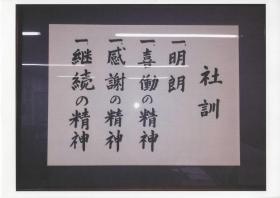 社訓
一、明朗
一、喜働の精神
一、感謝の精神
一、継続の精神